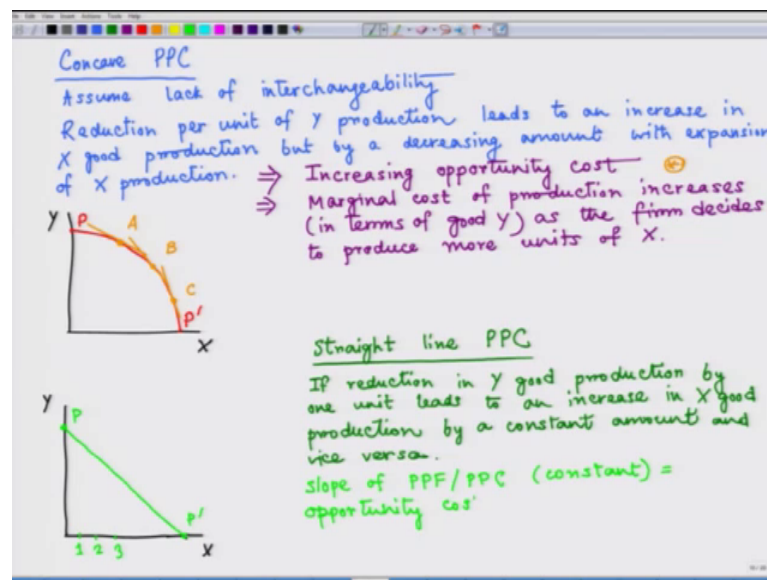 Concave PPC
Assume lack of interchangeability
Reduction per unit of Y production leads to an increase in
X good production but by a decreasing amount with expansion
of X production.
⇒ Increasing opportunity cost
⇒ Marginal cost of production increases
(in terms of good Y) as the firm decides
to produce more units of X.
Y
P
A
B
C
P'
X
Straight line PPC
If reduction in Y good production by
one unit leads to an increase in X good
production by a constant amount and
vice versa.
slope of PPF/PPC (constant) =
opportunity cos
Y
P
P'
1 2 3
X